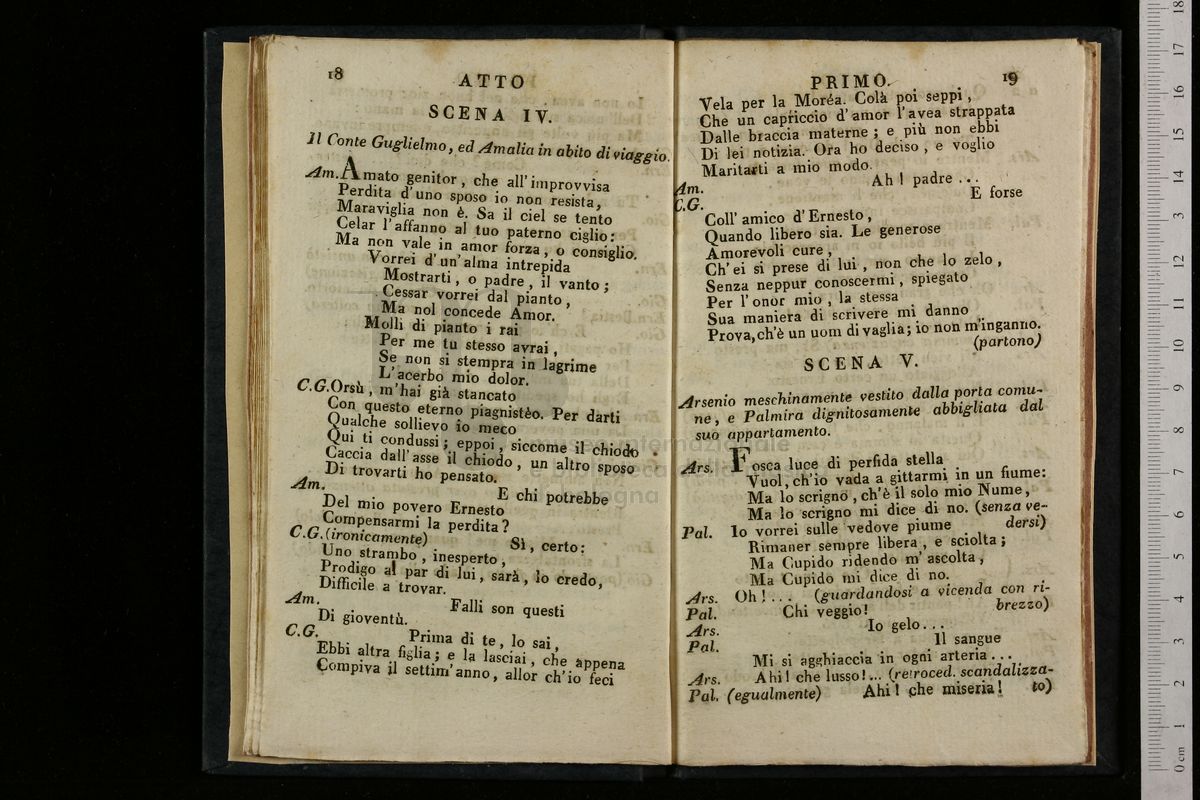 18
ATTO
SCENA IV.
Il Conte Guglielmo, ed Amalia in abito di viaggio.
Am. Amato genitor, che all'improvvisa
Perdita d'uno sposo io non resista,
Maraviglia non è. Sa il ciel se tento
Celar l'affanno al tuo paterno ciglio:
Ma non vale in amor forza, o consiglio.
Vorrei d'un'alma intrepida
Mostrarti, o padre, il vanto;
Cessar vorrei dal pianto,
Ma nol concede Amor.
Molli di pianto i rai
Per me tu stesso avrai,
Se non si stempra in lagrime
L'acerbo mio dolor.
C.G. Orsù, m'hai già stancato
Con questo eterno piagnistèo. Per darti
Qualche sollievo io meco
Qui ti condussi; eppoi, siccome il chiodo
Caccia dall'asse il chiodo, un altro sposo
Di trovarti ho pensato.
Am. E chi potrebbe
Del mio povero Ernesto
Compensarmi la perdita?
C.G. (ironicamente) Sì, certo:
Uno strambo, inesperto,
Prodigo al par di lui, sarà, lo credo,
Difficile a trovar.
Am. Falli son questi
Di gioventù.
C.G. Prima di te, lo sai,
Ebbi altra figlia; e la lasciai, che appena
Compiva il settim'anno, allor ch'io feci
PRIMO.
19
Vela per la Moréa. Colà poi seppi,
Che un capriccio d'amor l'avea strappata
Dalle braccia materne; e più non ebbi
Di lei notizia. Ora ho deciso, e voglio
Maritarti a mio modo.
Am. Ah! padre...
C.G. E forse
Coll'amico d'Ernesto,
Quando libero sia. Le generose
Amorevoli cure,
Ch'ei si prese di lui, non che lo zelo,
Senza neppur conoscermi, spiegato
Per l'onor mio, la stessa
Sua maniera di scrivere mi danno
Prova, ch'è un uom di vaglia; io non m'inganno.
(partono)
SCENA V.
Arsenio meschinamente vestito dalla porta comu-
ne, e Palmira dignitosamente abbigliata dal
suo appartamento.
Ars. Fosca luce di perfida stella
Vuol, ch'io vada a gittarmi in un fiume:
Ma lo scrigno, ch'è il solo mio Nume,
Ma lo scrigno mi dice di no. (senza ve-
dersi)
Pal. Io vorrei sulle vedove piume
Rimaner sempre libera, e sciolta;
Ma Cupido ridendo m'ascolta,
Ma Cupido mi dice di no.
Ars. Oh!... (guardandosi a vicenda con ri-
brezzo)
Pal. Chi veggio!
Ars. Io gelo...
Pal. Il sangue
Mi si agghiaccia in ogni arteria...
Ars. Ahi! che lusso!... (retroced. scandalizza-
to)
Pal. (egualmente) Ahi! che miseria!